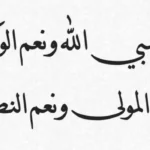 سبي الله ونعم الو
المولى ونعم النص